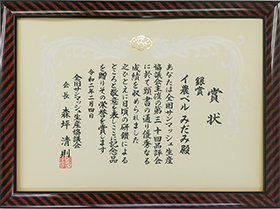 賞状
銀賞
イ農ベル みだみ殿
あなたは全国サンマッシュ生産
協議会主催の第三十回品評会
に於て頭書の通り優秀なる
成績を収められました
これひとえに日頃の研鑽による
ところと敬意を表しここに記念品
を贈りその栄誉を賞します
令和二年二月四日
全国サンマッシュ生産協議会
会長 森坪 清則